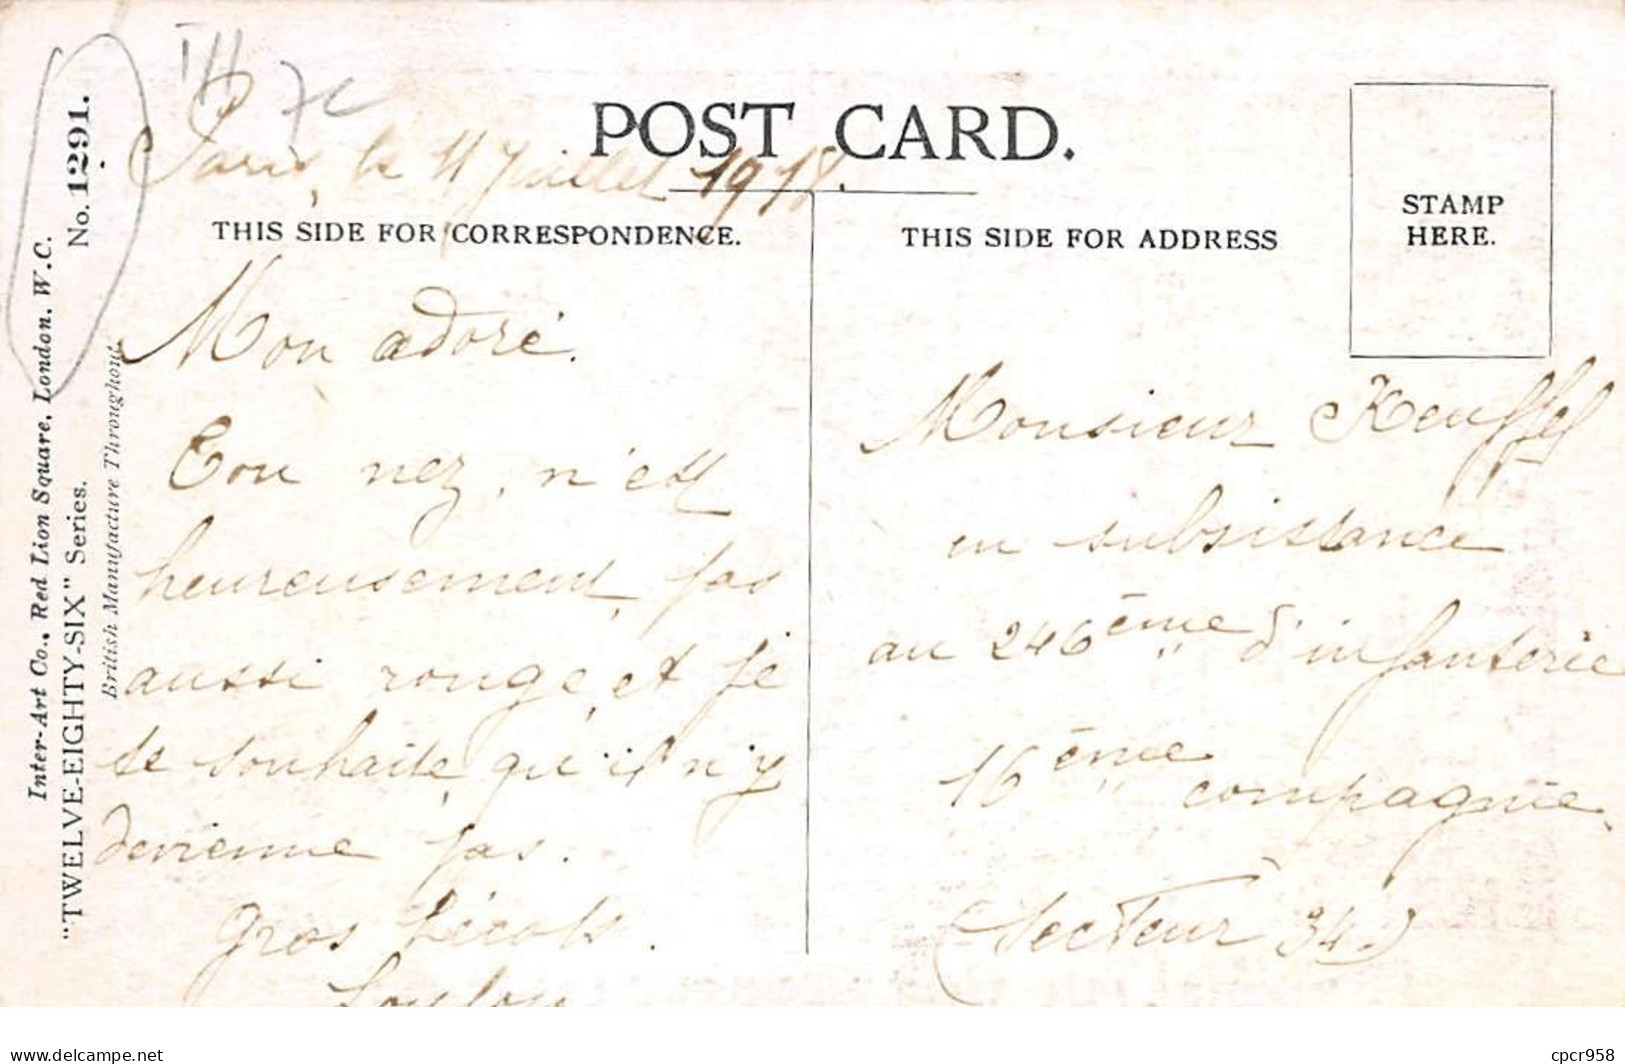 POST CARD.
Paris, le 11 Juillet 1918.
THIS SIDE FOR CORRESPONDENCE.
Mon adoré.
Ton nez, n'est
heureusement, pas
aussi rouge, et je
te souhaite, qu'il n'y
devienne pas.
Gros bécots.
Loulou
THIS SIDE FOR ADDRESS
STAMP
HERE.
Monsieur Keuffel
en subsistance
au 246ème d'infanterie
16ème compagnie.
(Secteur 34.)
Inter-Art Co., Red Lion Square, London, W.C.
"TWELVE-EIGHTY-SIX" Series. No. 1291.
British Manufacture Throughout.
7c
www.delcampe.net
cpcr958